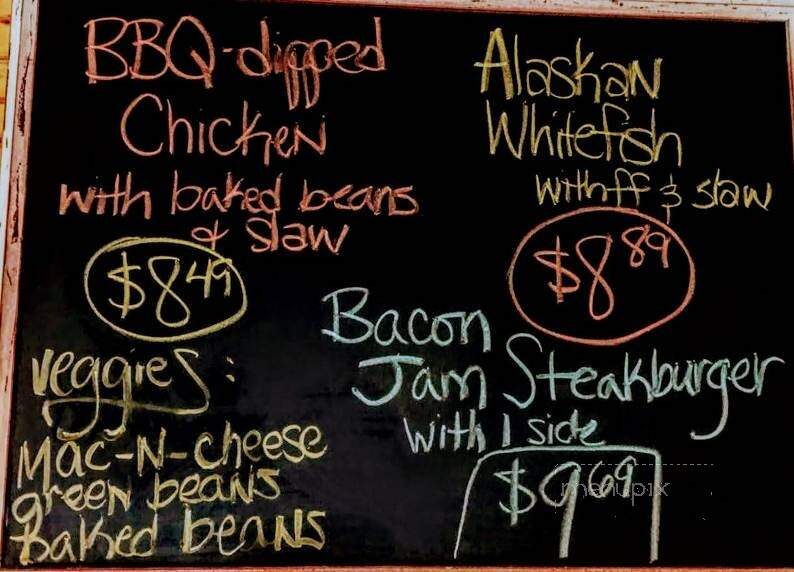 BBQ-dipped
Chicken
with baked beans
& slaw
$8 49
Alaskan
Whitefish
with ff & slaw
$8 89
Bacon
Jam Steakburger
with 1 side
$9 69
veggies:
Mac-N-cheese
green beans
Baked beans
menupix